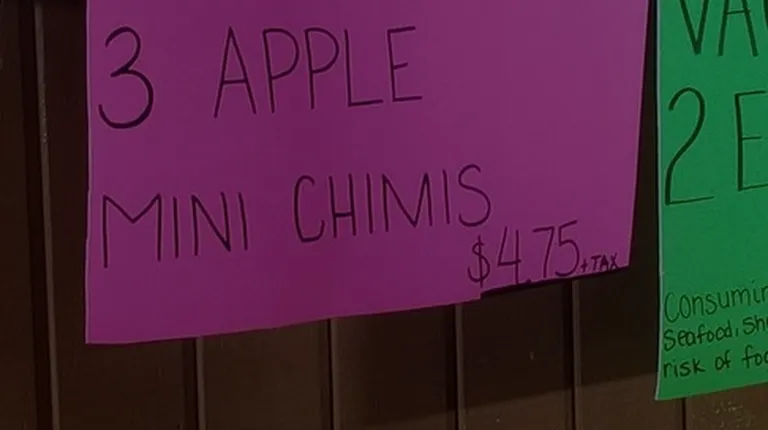 3 APPLE
MINI CHIMIS
$4.75 + TAX
2
Consuming
Seafood, 
risk of